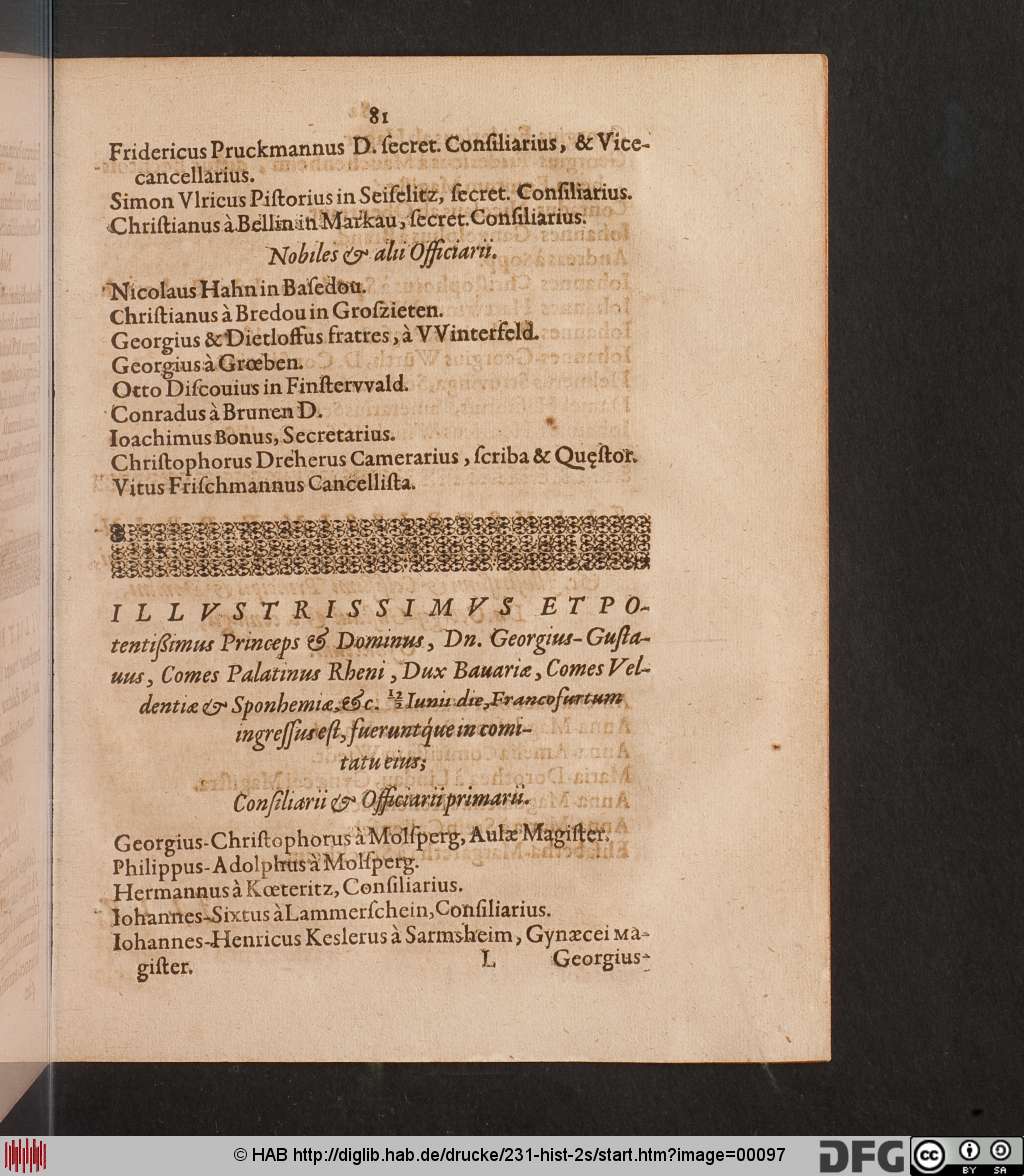 81
Fridericus Pruckmannus D. ſecret. Conſiliarius, & Vice-
cancellarius.
Simon Vlricus Piſtorius in Seiſelitz, ſecret. Conſiliarius.
Chriſtianus à Bellin in Markau, ſecret. Conſiliarius.
Nobiles & alii Officiarii.
Nicolaus Hahn in Baſedou.
Chriſtianus à Bredou in Groſzieten.
Georgius & Dietloffus fratres, à VVinterfeld.
Georgius à Grœben.
Otto Diſcouius in Finſtervvald.
Conradus à Brunen D.
Ioachimus Bonus, Secretarius.
Chriſtophorus Dreherus Camerarius, ſcriba & Quęſtor.
Vitus Friſchmannus Cancelliſta.
ILLVSTRISSIMVS ET PO-
tentißimus Princeps & Dominus, Dn. Georgius-Guſta-
uus, Comes Palatinus Rheni, Dux Bauariæ, Comes Vel-
dentiæ & Sponhemiæ, &c. 12/2 Iunii die, Francofurtum
ingreſſus eſt, fueruntq́ue in comi-
tatu eius;
Conſiliarii & Officiarii primarii.
Georgius-Chriſtophorus à Molſperg, Aulæ Magiſter.
Philippus-Adolphus à Molſperg.
Hermannus à Kœteritz, Conſiliarius.
Iohannes-Sixtus à Lammerſchein, Conſiliarius.
Iohannes-Henricus Keslerus à Sarmsheim, Gynæcei Ma-
giſter.
L Georgius-
© HAB http://diglib.hab.de/drucke/231-hist-2s/start.htm?image=00097
DFG
cc
BY SA